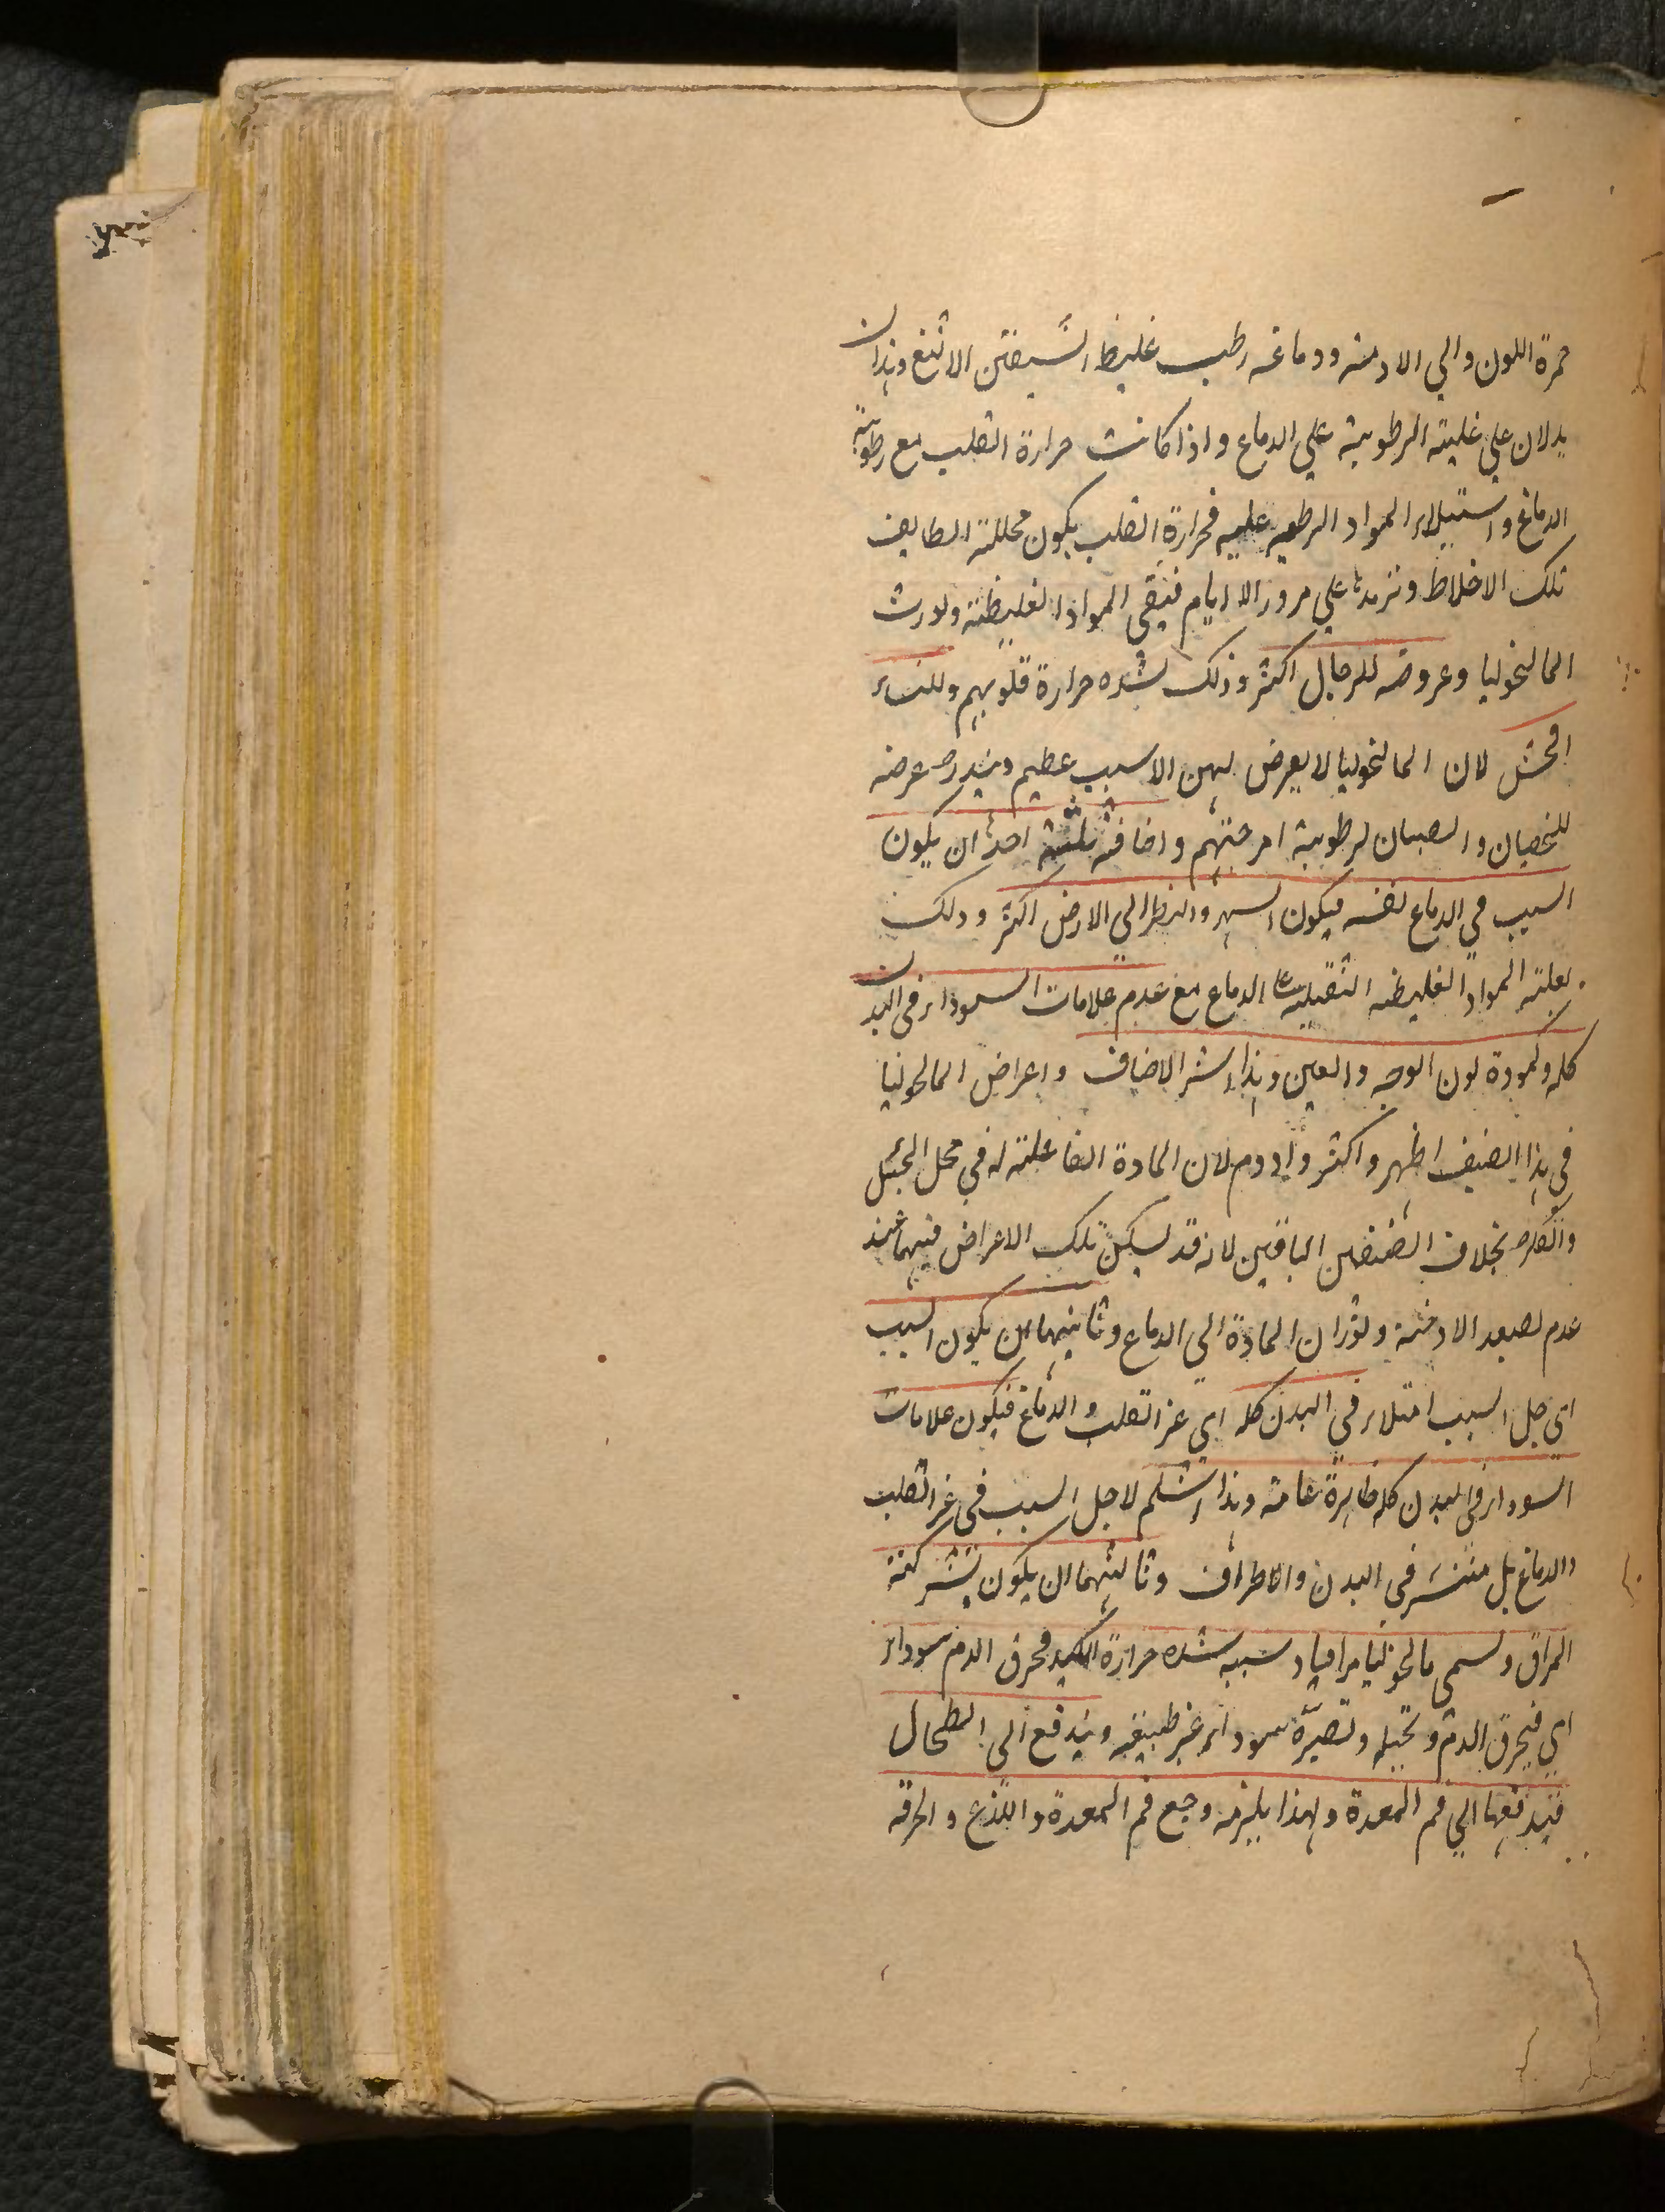 حمرة اللون والي الادمة ودماغه رطب غليظ الشفتين الالثغ وهذان
يدلان علي غلبة الرطوبة علي الدماغ واذا كانت حرارة القلب مع رطوبة
الدماغ واستيلاء المواد الرطبه عليه فحرارة القلب يكون محللة لطايف
تلك الاخلاط وتزيدها علي مرور الايام فيبقي المواد الغليظة ويورث
المالنخوليا وعروضه للرجال اكثر وذلك لشده حرارة قلوبهم وللنساء
افحش لان المالنخوليا لا يعرض لهن الا لسبب عظيم ويندر عرضه
للخصيان والصبيان لرطوبة امزجتهم واصنافه ثلثة احدها ان يكون
السبب في الدماغ نفسه فيكون السهر والنظر الي الارض اكثر وذلك
لغلبة المواد الغليظه الثقيلة علي الدماغ مع عدم علامات السوداء في البدن
كله وكمودة لون الوجه والعين وهذا شر الاصناف واعراض المالنخوليا
في هذا الصنف اظهر واكثر وادوم لان المادة الفاعلة له في محل التخيل
والفكر بخلاف الصنفين الباقيين لانه قد يسكن تلك الاعراض فيهما عند
عدم تصعد الادخنة وثوران المادة الي الدماغ وثانيهما ان يكون السبب
اي جل السبب امتلاء في البدن كله اي غير القلب والدماغ فيكون علامات
السوداء في البدن كله ظاهرة عامة وهذا اسلم لاجل السبب في غير القلب
والدماغ بل منتشر في البدن والاطراف وثالثهما ان يكون بشركة
المراق ويسمي مالنخوليا مراقيا وسببه شده حرارة الكبد فيحرق الدم سوداء
اي فيحرق الدم ويحيله وتصيره سوداء غير طبيعيه ويندفع الي الطحال
فيدفعها الي فم المعدة ولهذا يلزمه وجع فم المعدة واللذع والحرقة